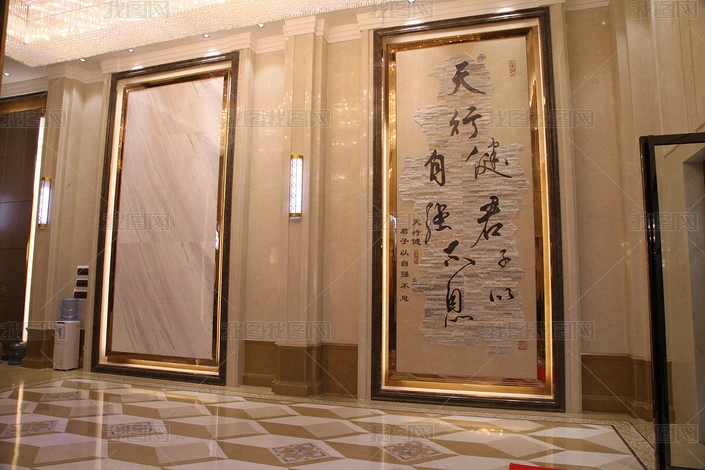 天行健君子以
自强不息
天行健
君子以自强不息
我图网